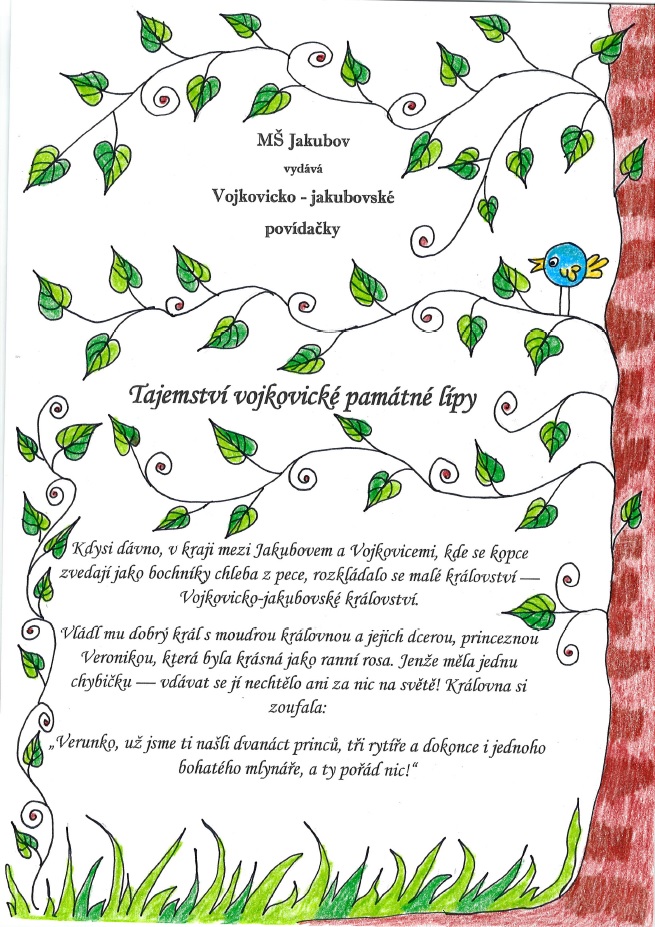 MŠ Jakubov
vydává
Vojkovicko - jakubovské
povídačky
Tajemství vojkovické památné lípy
Kdysi dávno, v kraji mezi Jakubovem a Vojkovicemi, kde se kopce
zvedají jako bochníky chleba z pece, rozkládalo se malé království —
Vojkovicko-jakubovské království.
Vládl mu dobrý král s moudrou královnou a jejich dcerou, princeznou
Veronikou, která byla krásná jako ranní rosa. Jenže měla jednu
chybičku — vdávat se jí nechtělo ani za nic na světě! Královna si
zoufala:
„Verunko, už jsme ti našli dvanáct princů, tři rytíře a dokonce i jednoho
bohatého mlynáře, a ty pořád nic!“